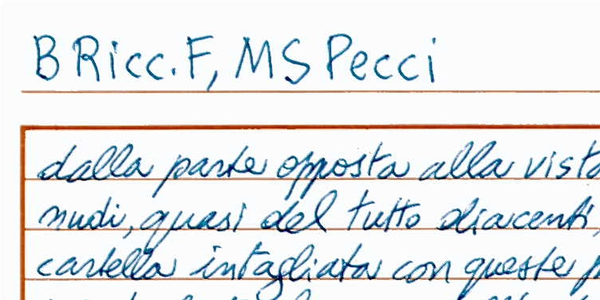 B Ricc. F, MS Pecci
dalla parte opposta alla vista
nudi, quasi del tutto diacenti,
cartella intagliata con queste